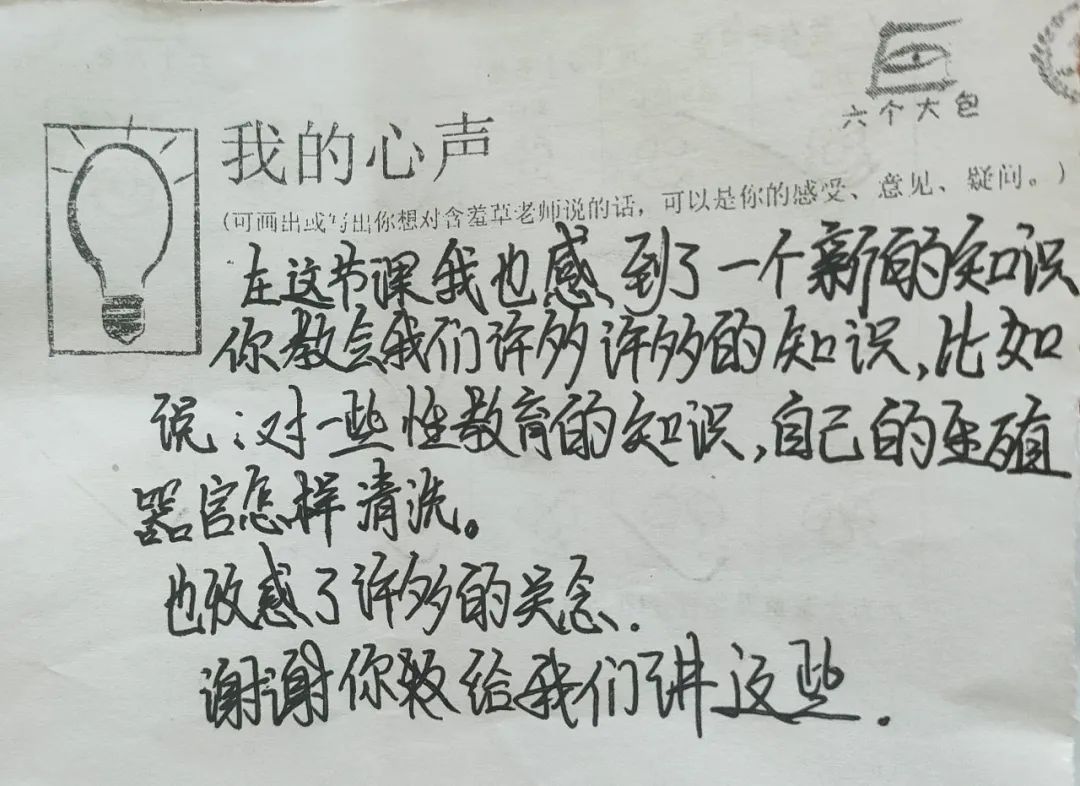 六个大包
我的心声
(可画出或写出你想对含羞草老师说的话，可以是你的感受、意见、疑问。)
在这节课我也感到了一个新的知识
你教会我们许多许多的知识,比如
说:对一些性教育的知识,自己的生殖
器官怎样清洗。
也改感了许多的关念.
谢谢你教给我们讲这些.